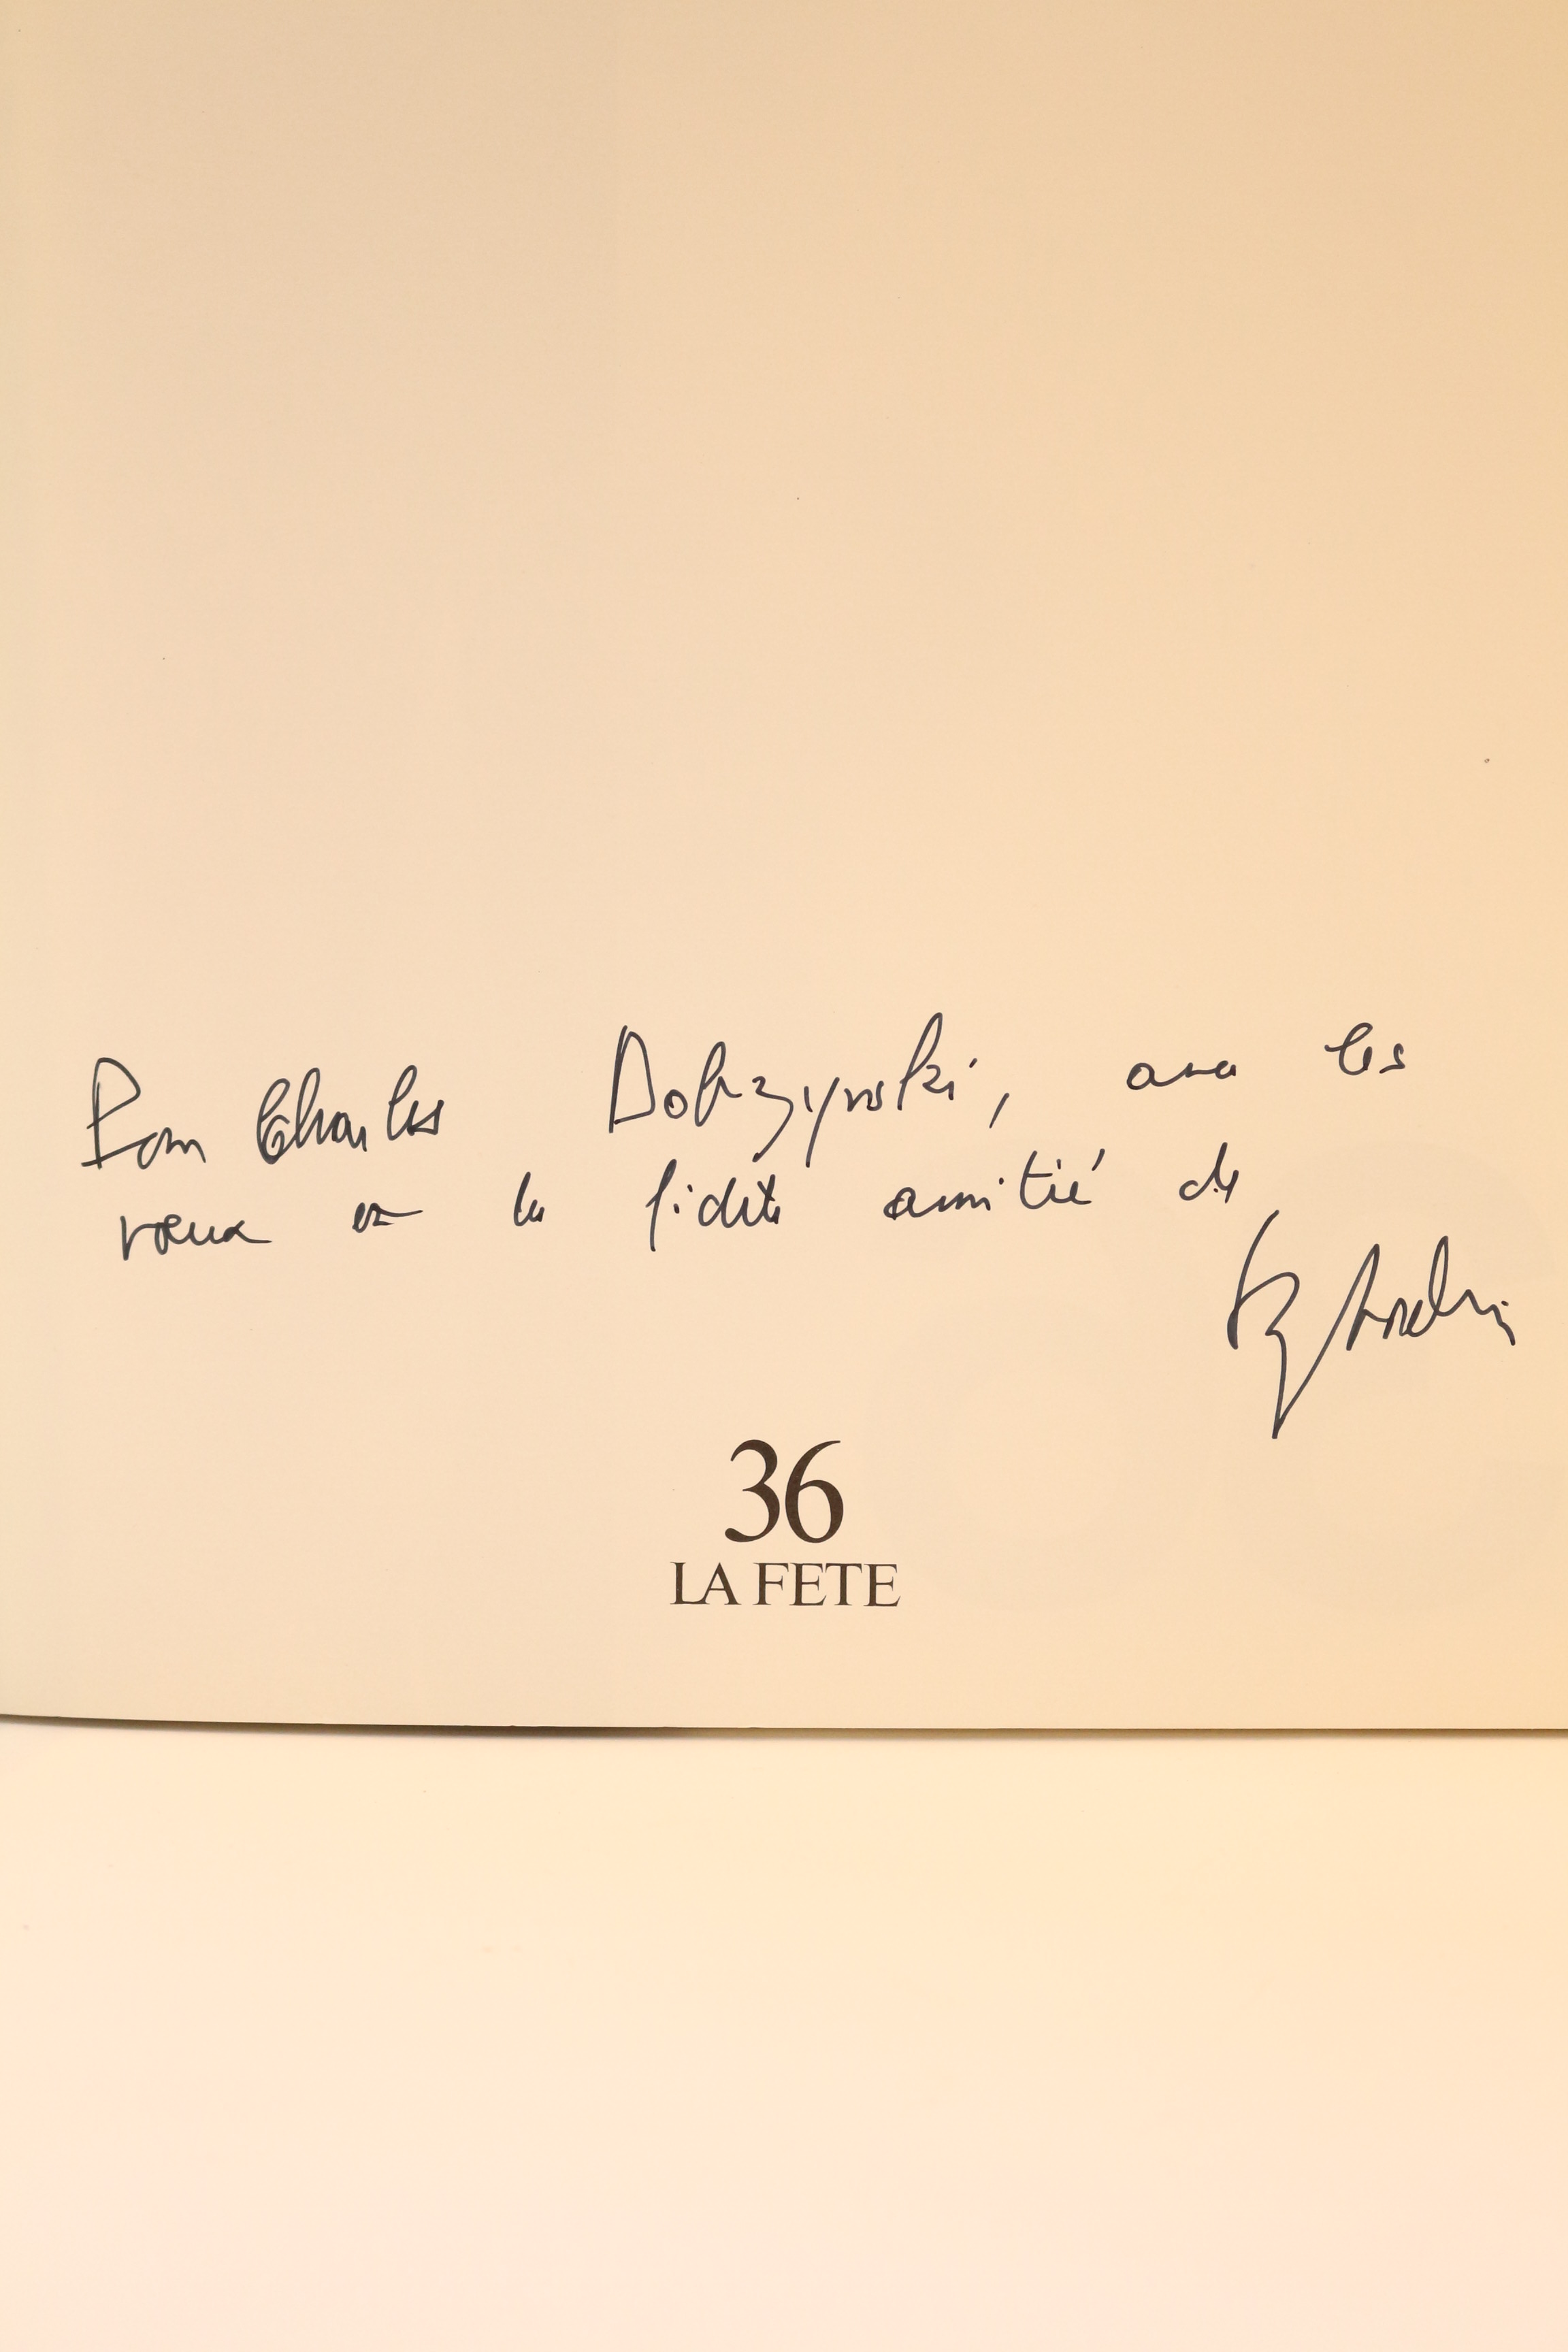 Pour Charles Dobrzynski, avec les
vœux et la fidèle amitié de
36
LA FETE